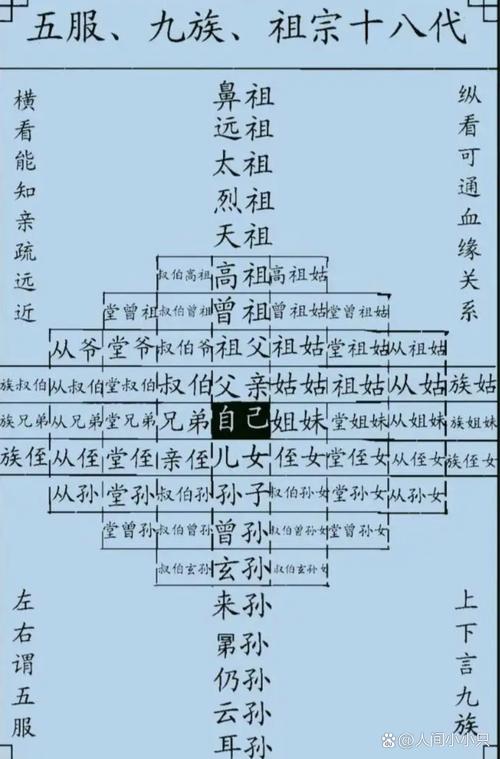 五服、九族、祖宗十八代
横看能知亲疏远近
纵看可通血缘关系
鼻祖
远祖
太祖
烈祖
天祖
叔伯高祖 高祖 高祖姑
堂曾祖 叔伯曾祖 曾祖 曾祖姑 堂曾祖姑
从爷 堂爷 叔伯爷 祖父 祖姑 堂祖姑 从祖姑
族叔伯 从叔伯 堂叔伯 叔伯 父亲 姑姑 祖姑 从姑 族姑
族兄弟 从兄弟 堂兄弟 兄弟 自己 姐妹 堂姐妹 从姐妹 族姐妹
族侄 从侄 堂侄 亲侄 儿女 侄女 堂侄女 从侄女 族侄女
从孙 堂孙 叔伯孙 孙子 叔伯孙女 堂孙女 从孙女
堂曾孙 叔伯曾孙 曾孙 叔伯曾孙女 堂曾孙女
叔伯玄孙 玄孙 叔伯玄孙女
来孙
晜孙
仍孙
云孙
耳孙
左右谓五服
上下言九族
@人间小小只